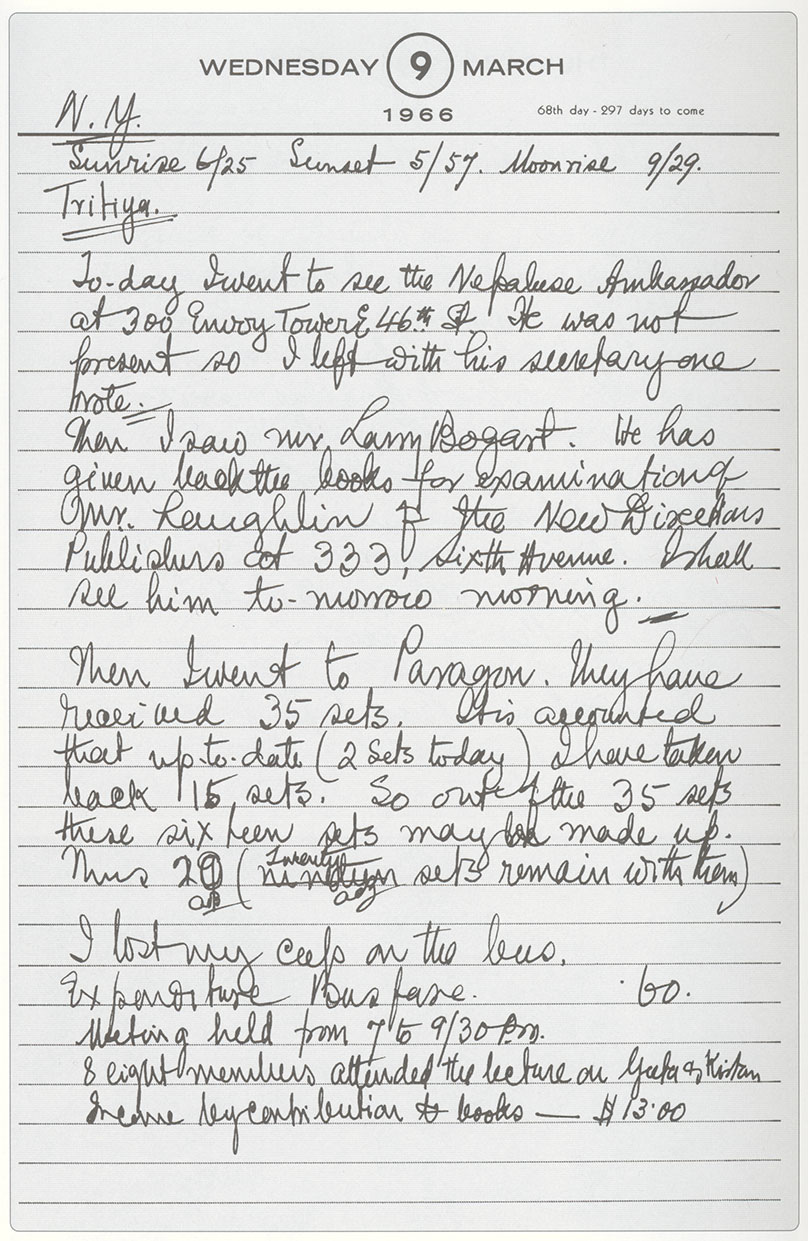 WEDNESDAY 9 MARCH
1966 68th day - 297 days to come
N. Y.
Sunrise 6/25 Sunset 5/57. Moonrise 9/29.
Tritiya.
To-day I went to see the Nepalese Ambassador
at 300 Envoy Tower E 46th St. He was not
present so I left with his secretary one
note.
Then I saw mr. Larry Bogart. He has
given back the books for examination of
Mr. Laughlin of the New Directions
Publishers at 333, Sixth Avenue. I shall
see him to-morrow morning.
Then I went to Paragon. They have
received 35 sets. It is accounted
that up-to-date (2 sets today) I have taken
back 15 sets. So out of the 35 sets
these sixteen sets may be made up.
Twenty
Thus 20 (nineteen sets remain with them)
I lost my cap on the bus.
Expenditure Bus fare. .60.
Meeting held from 7 to 9/30 P.m.
8 eight members attended the lecture on Geeta & Kirtan
Income by contribution & books — $13.00